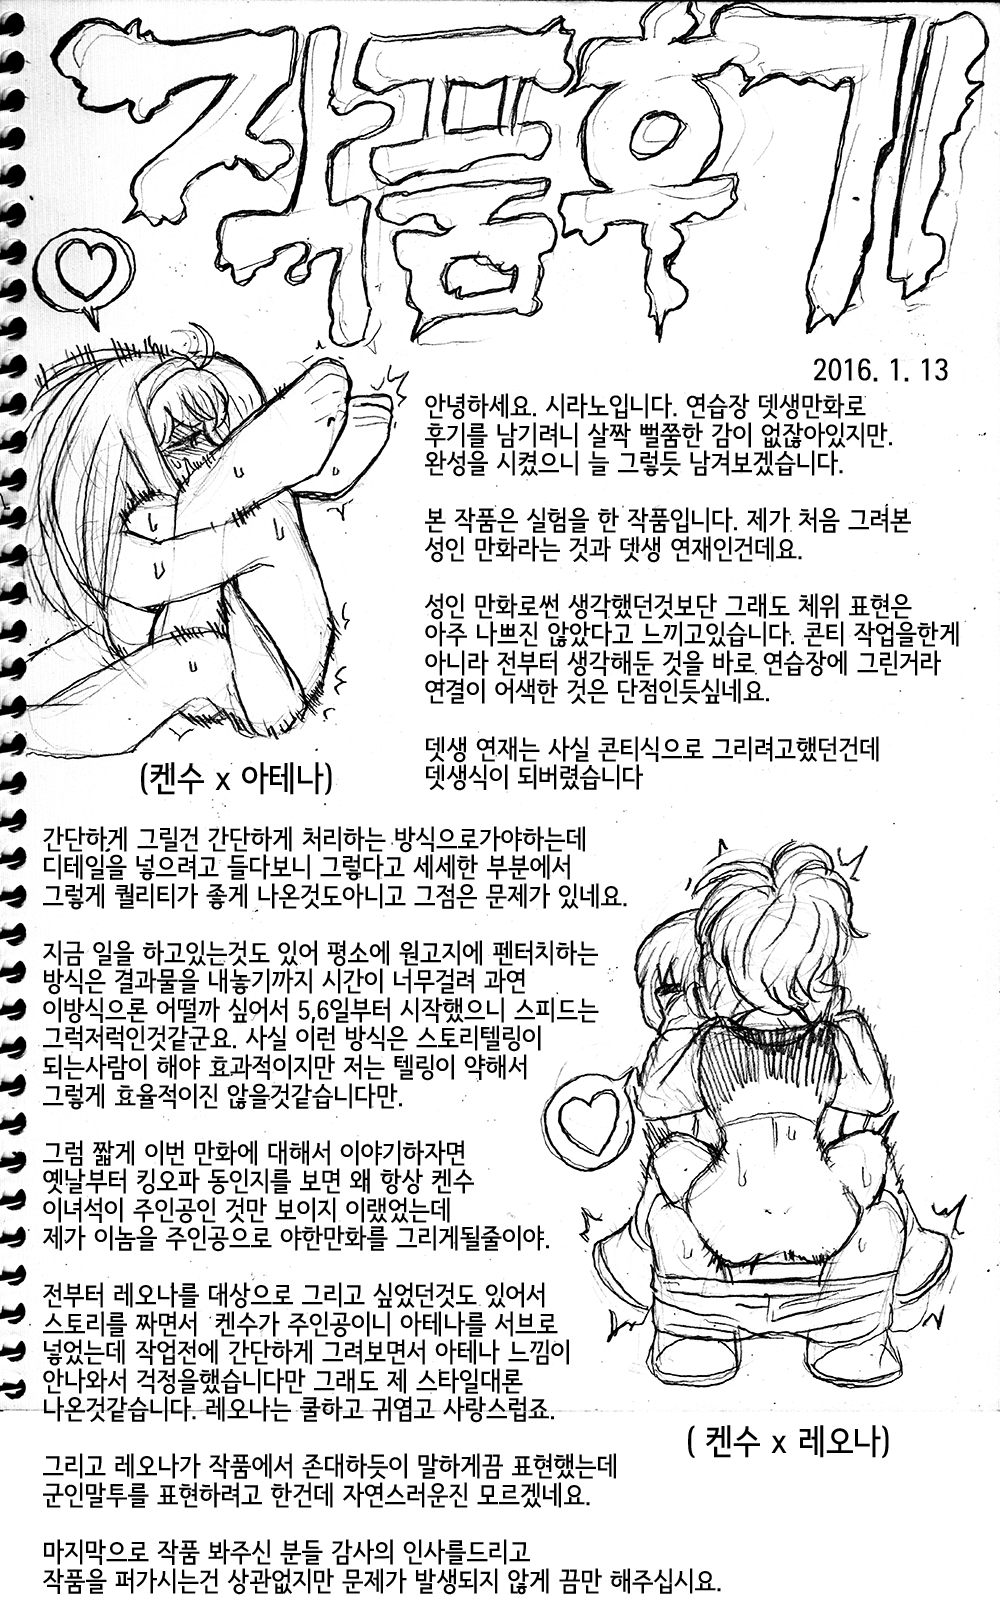 작품후기
2016. 1. 13
안녕하세요. 시라노입니다. 연습장 뎃생만화로
후기를 남기려니 살짝 뻘쭘한 감이 없잖아있지만.
완성을 시켰으니 늘 그렇듯 남겨보겠습니다.
본 작품은 실험을 한 작품입니다. 제가 처음 그려본
성인 만화라는 것과 뎃생 연재인건데요.
성인 만화로썬 생각했던것보단 그래도 체위 표현은
아주 나쁘진 않았다고 느끼고있습니다. 콘티 작업을한게
아니라 전부터 생각해둔 것을 바로 연습장에 그린거라
연결이 어색한 것은 단점인듯싶네요.
뎃생 연재는 사실 콘티식으로 그리려고했던건데
뎃생식이 되버렸습니다
(켄수 x 아테나)
간단하게 그릴건 간단하게 처리하는 방식으로가야하는데
디테일을 넣으려고 들다보니 그렇다고 세세한 부분에서
그렇게 퀄리티가 좋게 나온것도아니고 그점은 문제가 있네요.
지금 일을 하고있는것도 있어 평소에 원고지에 펜터치하는
방식은 결과물을 내놓기까지 시간이 너무걸려 과연
이방식으론 어떨까 싶어서 5,6일부터 시작했으니 스피드는
그럭저럭인것같군요. 사실 이런 방식은 스토리텔링이
되는사람이 해야 효과적이지만 저는 텔링이 약해서
그렇게 효율적이진 않을것같습니다만.
그럼 짧게 이번 만화에 대해서 이야기하자면
옛날부터 킹오파 동인지를 보면 왜 항상 켄수
이녀석이 주인공인 것만 보이지 이랬었는데
제가 이놈을 주인공으로 야한만화를 그리게될줄이야.
전부터 레오나를 대상으로 그리고 싶었던것도 있어서
스토리를 짜면서 켄수가 주인공이니 아테나를 서브로
넣었는데 작업전에 간단하게 그려보면서 아테나 느낌이
안나와서 걱정을했습니다만 그래도 제 스타일대론
나온것같습니다. 레오나는 쿨하고 귀엽고 사랑스럽죠.
( 켄수 x 레오나)
그리고 레오나가 작품에서 존대하듯이 말하게끔 표현했는데
군인말투를 표현하려고 한건데 자연스러운진 모르겠네요.
마지막으로 작품 봐주신 분들 감사의 인사를드리고
작품을 퍼가시는건 상관없지만 문제가 발생되지 않게 끔만 해주십시요.